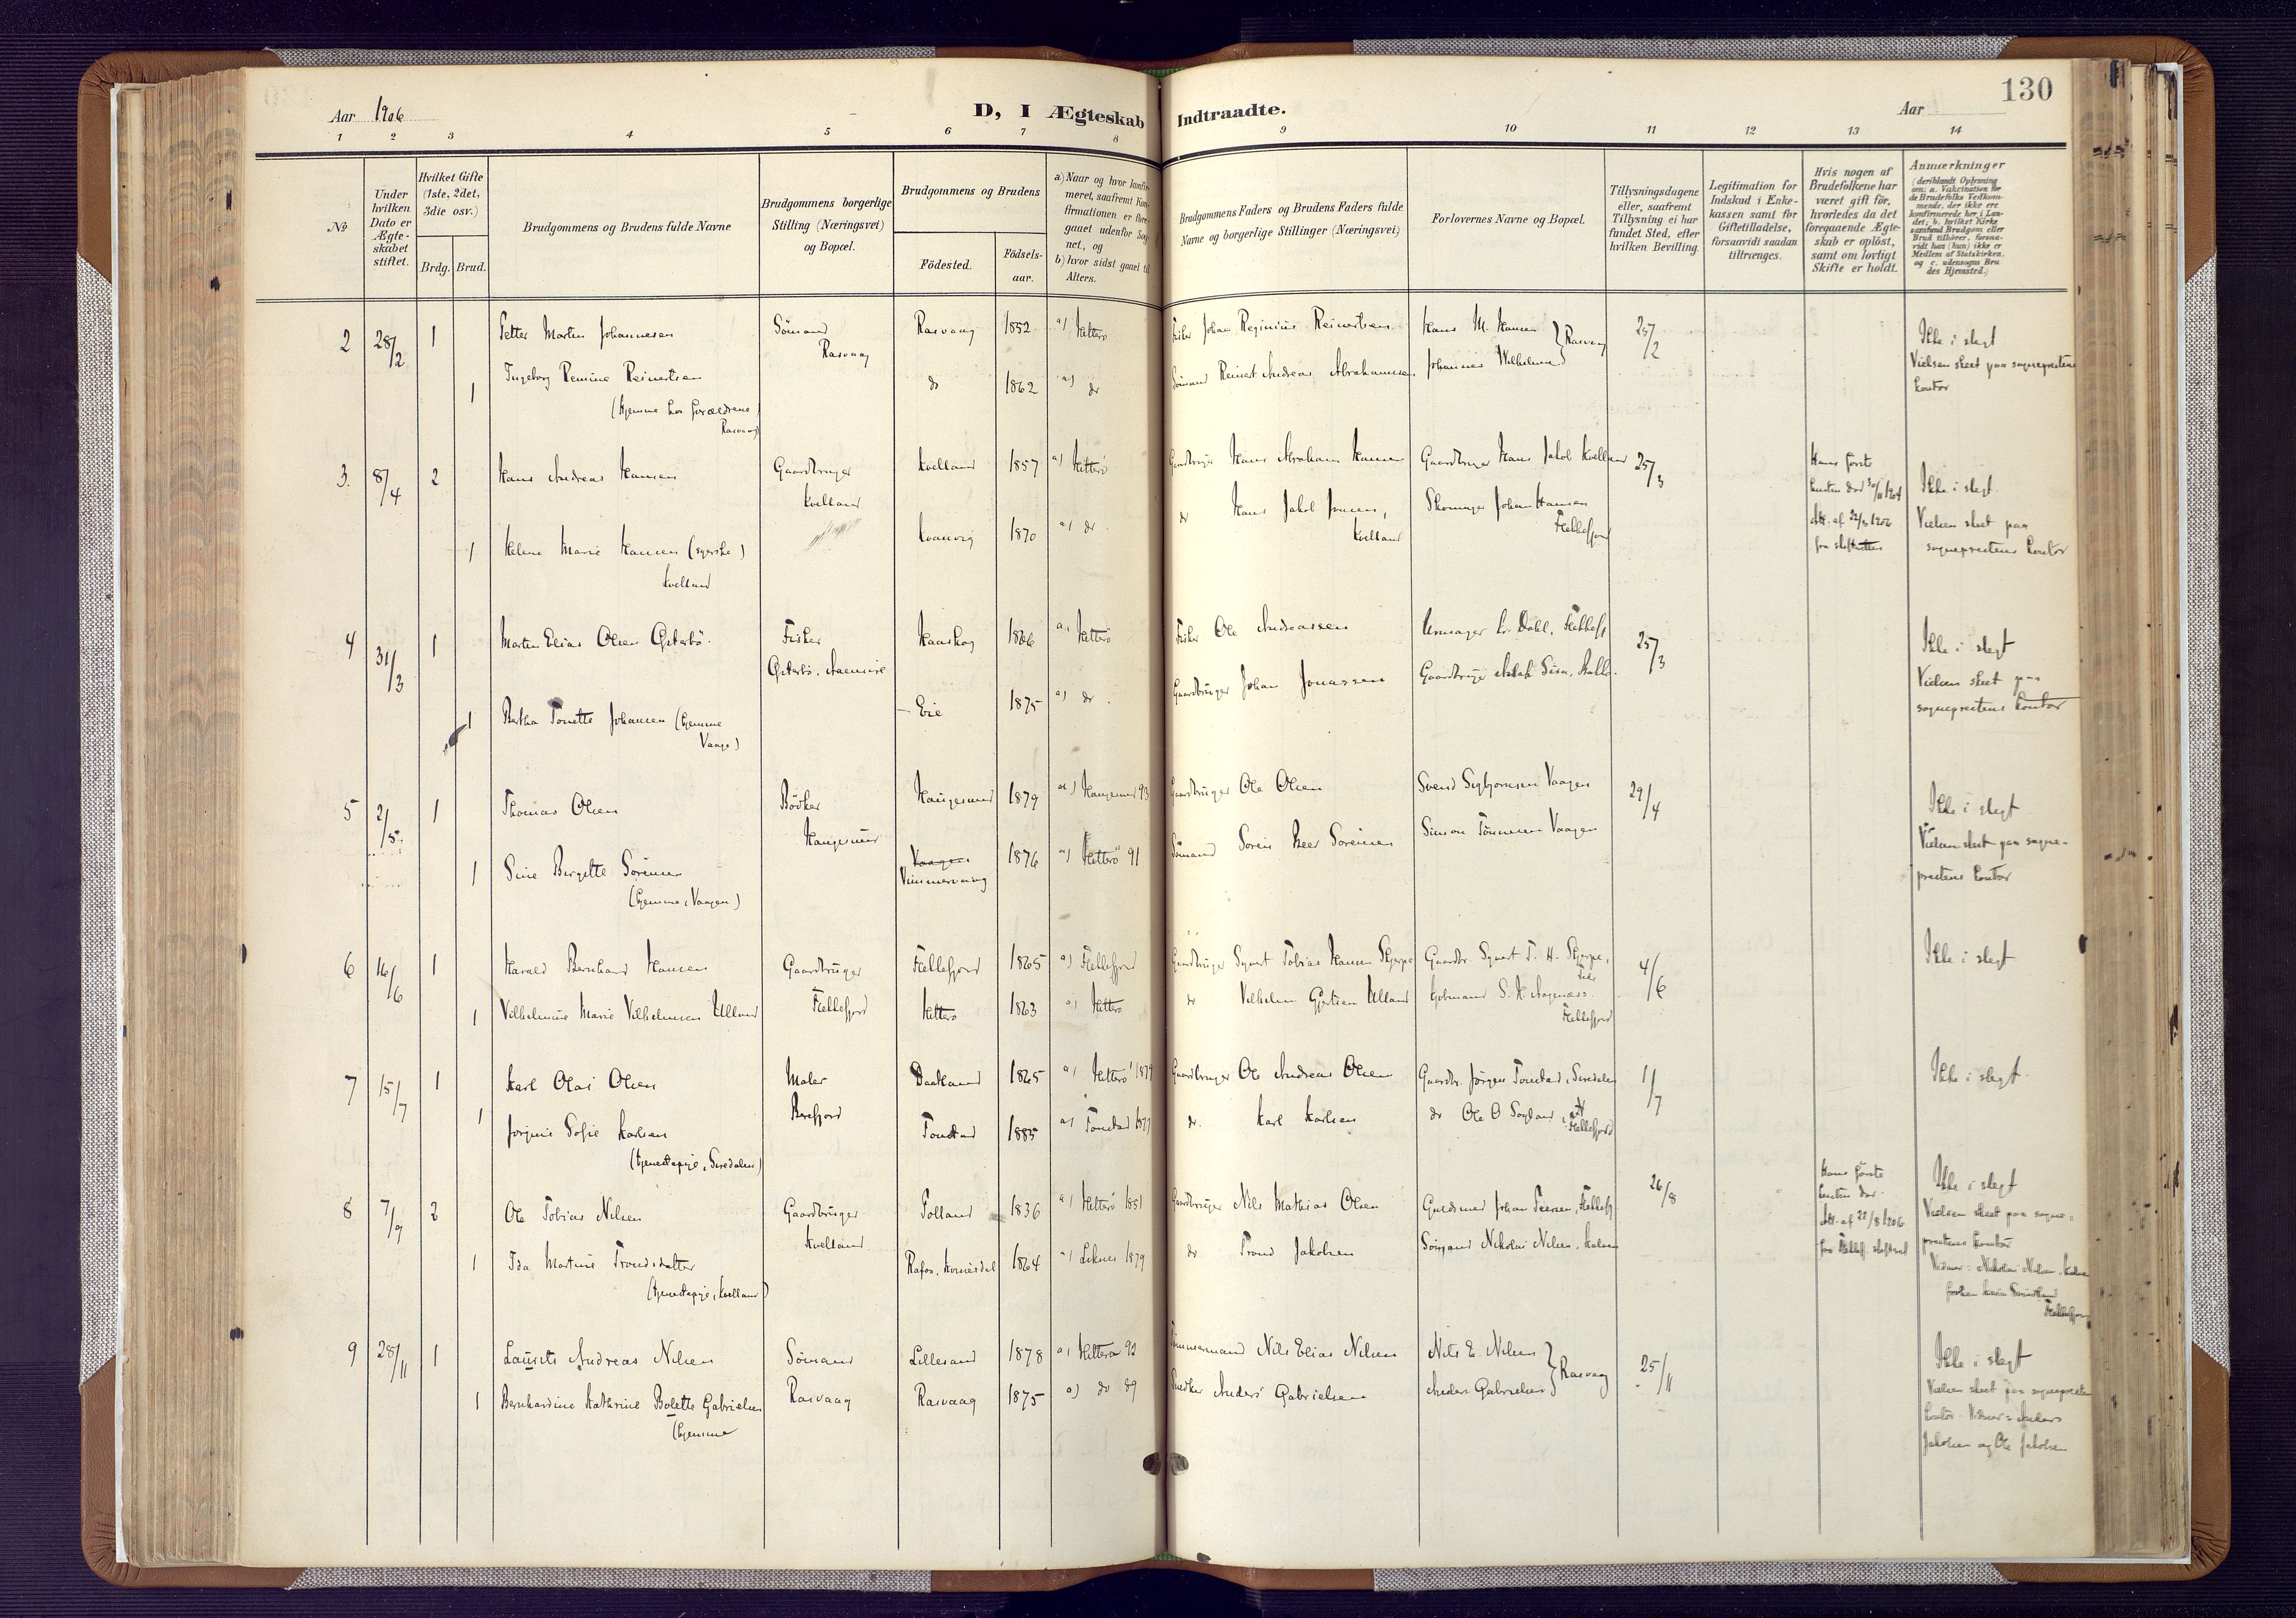 130
Aar 1906
D, I Ægteskab Indtraadte.
Aar
1 2 3 4 5 6 7 8 9 10 11 12 13 14
No
Under hvilken Dato er Ægte-skabet stiftet.
Hvilket Gifte (1ste, 2det, 3die osv.)
Brdg. Brud.
Brudgommens og Brudens fulde Navne
Brudgommens borgerlige Stilling (Næringsvei) og Bopæl.
Brudgommens og Brudens
Födested.
Födsels-aar.
a) Naar og hvor konfir-meret, saafremt Kon-firmationen er fore-gaaet udenfor Sog-net, og
b) hvor sidst gaaet til Alters.
Brudgommens Faders og Brudens Faders fulde Navne og borgerlige Stillinger (Næringsvei)
Forlovernes Navne og Bopæl.
Tillysningsdagene eller, saafremt Tillysning ei har fundet Sted, efter hvilken Bevilling.
Legitimation for Indskud i Enke-kassen samt for Giftetilladelse, forsaavidt saadan tiltrænges.
Hvis nogen af Brudefolkene har været gift för, hvorledes da det foregaaende Ægte-skab er oplöst, samt om lovligt Skifte er holdt.
Anmærkninger
(deriblandt Oplysning om: a. Vakcination for de Brudefolks Vedkom-mende, der ikke ere konfirmerede her i Lan-det, b. hvilket Kirke-samfund Brudgom eller Brud tilhörer, forsaa-vidt han (hun) ikke er Medlem af Statskirken, og c. udensogns Bru-des Hjemsted.)
2 28/2 1 Petter Martin Johannesen Sömand Rasvaag 1852 a) Hitterö Fisker Johan Reginius Reinertsen Hans M. Hansen } Rasvaag 25/2 Ikke i slegt
Rasvaag Johannes Wilhelmsen Vielsen skeet paa sogneprestens
1 Ingeborg Remine Reinertsen do 1862 a) do Sömand Reinert Andreas Abrahamsen kontor
(hjemme hos forældrene
Rasvaag)
3. 8/4 2 Hans Andreas Hansen Gaardbruger Kvelland 1857 a) Hitterö Gaardbruger Hans Abraham Hansen Gaardbruger Hans Jakob Kvelland 25/3 Hans förste Ikke i slegt
Kvelland hustru död 30/11 1904
1 Helene Marie Hansen (syerske) Kvanvig 1870 a) do do Hans Jakob Jonsen, Skomager Johan Hansen att. af 22/3 1906 Vielsen skeet paa
Kvelland Kvelland Flekkefjord fra skifteretten sogneprestens kontor
4 31/3 1 Martin Elias Olsen Österbö Fisker Hanskog 1866 a) Hitterö Fisker Ole Andreassen Urmager Dahl, Flekkefj 25/3 Ikke i slegt
Österbö,
1 Bertha Tonette Johansen (hjemme Eie 1875 a) do Gaardbruger Johan Jonassen Vielsen skeet paa
Vaage) sogneprestens kontor
5 2/5 1 Thomas Olsen Bödker Haugesund 1879 a) Haugesund 93 Gaardbruger Ole Olsen Svend Sigbjörnsen Vaagen 29/4 Ikke i slegt
Haugesund Simon Tönnesen Vaagen
1 Sine Birgitte Sörensen Vaagen 1876 a) Hitterö 91 Sömand Sören Peer Sörensen Vielsen skeet paa sogne-
(hjemme, Vaagen) prestens kontor
6 16/6 1 Harald Bernhard Hansen Gaardbruger Flekkefjord 1865 a) Flekkefjord Gaardbruger Syvert Tobias Hansen Skjerpe Gaardbr. Syvert T. H. Skjerpe, 4/6 Ikke i slegt
1 Vilhelmine Marie Vilhelmsen Ulland Flekkefjord Hitterö 1863 a) Hitterö do Vilhelm Gjertsen Ulland Kjöbmand S. K. Aagenæs
Flekkefjord
7 15/7 1 Karl Olai Olsen Maler Daatland 1865 a) Hitterö 1879 Gaardbruger Ole Andreas Olsen Gaardbr. Jörgen Tonstad, Siredalen 1/7 Ikke i slegt
1 Jörgine Sofie Karlsen Tonstad 1885 a) Tonstad do Karl Karlsen do Ole O
(tjenestepige, Siredalen) Flekkefjord
8 7/9 2 Ole Tobias Nilsen Gaardbruger Tolland 1836 a) Hitterö 1851 Gaardbruger Nils Mathias Olsen Guldsmed Johan Flekkefj 26/8 Hans förste Ikke i slegt
Kvelland hustru död Vielsen skeet paa sogne-
1 Ida Martine Trondsdatter 1864 a) 1879 do Trond Jakobsen Sömand Nikolai Nilsen att. af 22/8 1906 prestens kontor
(tjenestepige, Kvelland) fra Flekkef. skifteret Vidner: Nikolai Nilsen
Flekkefjord
9 28/11 1 Laurits Andreas Nilsen Sömand Lillesand 1878 a) Hitterö 92 Tömmermand Nils Elias Nilsen Nils E. Nilsen } Rasvaag 25/11 Ikke i slegt
1 Bernhardine Kathrine Bolette Gabrielsen Rasvaag Rasvaag 1875 a) do 89 Snedker Anders Gabrielsen Anders Gabrielsen Vielsen skeet paa sogneprestens
(hjemme kontor. Vidner: Anders
Jakobsen og Ole Jakobsen